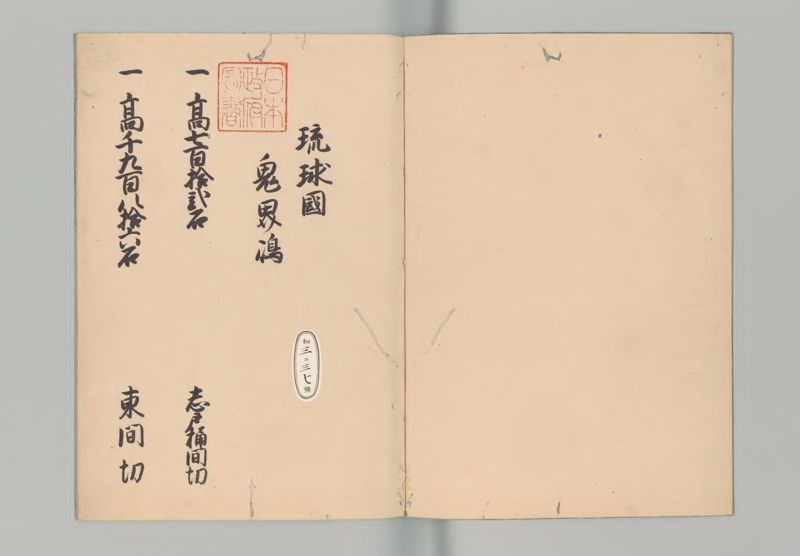 琉球國
鬼界嶋
日本
政府
圖書
一 高七百拾貳石 志戸桶間切
一 高千九百八拾六石 東間切
和
三〇三七
號